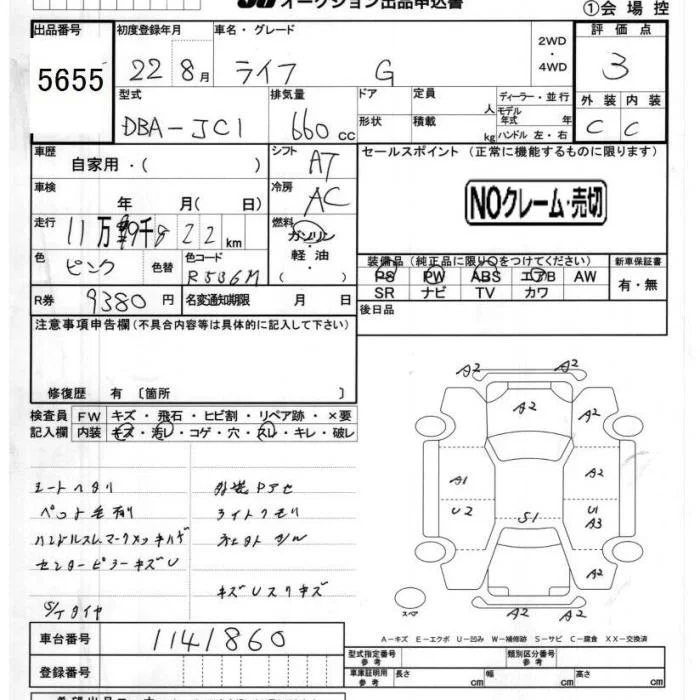 オークション出品申込書
①会場控
出品番号 初度登録年月 車名・グレード 2WD・4WD 評価点
5655 22 8月 ライフ G 3
型式 排気量 ドア 定員 人 ディーラー・並行
モデル年式 年 外装 内装
DBA-JC1 660 cc 形状 積載 kg ハンドル 左・右 C C
車歴 自家用・( ) シフト AT セールスポイント (正常に機能するものに限ります)
車検 年 月( 日) 冷房 AC NOクレーム・売切
走行 11万 9千 822 km 燃料 ガソリン・軽油・( )
色 ピンク 色替 色コード R536M
装備品 (純正品に限り○をつけてください) 新車保証書
PS PW ABS エアB AW 有・無
SR ナビ TV カワ
R券 9380円 名変通知期限 月 日 後日品
注意事項申告欄 (不具合内容等は具体的に記入して下さい)
修復歴 有 〔箇所 〕
検査員 FW キズ・飛石・ヒビ割・リペア跡・×要
記入欄 内装 キズ・汚レ・コゲ・穴・スレ・キレ・破レ
A2 A2
A2 A2
A1 A2
U2 U1
S1 A3
A2
A2 A2
シートヘタリ
ペット毛有リ ライトクモリ
ハンドルスレマークメッキハゲ
センターピラーキズU
キズUスリキズ
S/Tタイヤ
スペア
A-キズ E-エクボ U-凹み W-補修跡 S-サビ C-腐食 XX-交換済
車台番号 1141860
型式指定番号 参考 類別区分番号 参考
登録番号 車庫証明用 参考 長さ cm 幅 cm 高さ cm